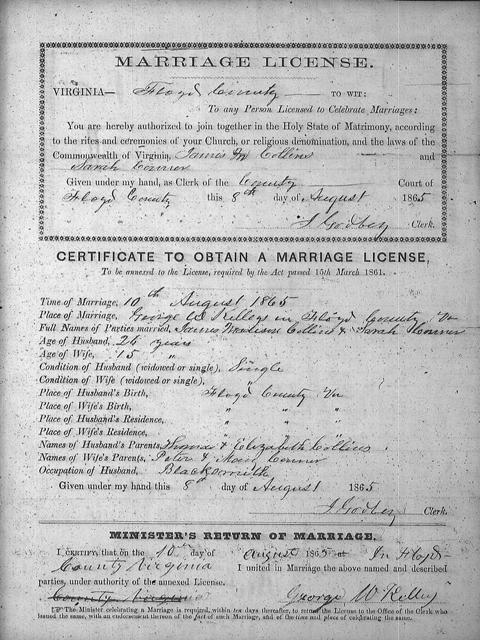 MARRIAGE LICENSE.
VIRGINIA— Floyd County TO WIT:
To any Person Licensed to Celebrate Marriages:
You are hereby authorized to join together in the Holy State of Matrimony, according
to the rites and ceremonies of your Church, or religious denomination, and the laws of the
Commonwealth of Virginia, James M Collins and
Sarah Conner
Given under my hand, as Clerk of the County Court of
Floyd County this 8th day of August 1865
Godbey Clerk.
CERTIFICATE TO OBTAIN A MARRIAGE LICENSE,
To be annexed to the License, required by the Act passed 15th March 1861.
Time of Marriage, 10th August 1865
Place of Marriage, George W Kelleys in Floyd County Va
Full Names of Parties married, James Madison Collins & Sarah Conner
Age of Husband, 26 years
Age of Wife, 15 "
Condition of Husband (widowed or single), Single
Condition of Wife (widowed or single), "
Place of Husband's Birth, Floyd County Va
Place of Wife's Birth, " " "
Place of Husband's Residence, " " "
Place of Wife's Residence, " " "
Names of Husband's Parents, & Elizabeth Collins
Names of Wife's Parents, Peter & Mary Conner
Occupation of Husband, Blacksmith
Given under my hand this 8th day of August 1865
Godbey Clerk.
MINISTER'S RETURN OF MARRIAGE.
I CERTIFY, that on the 10th day of August 1865 at In Floyd
County Virginia I united in Marriage the above named and described
parties, under authority of the annexed License.
County Virginia George W Kelley
The Minister celebrating a Marriage is required, within ten days thereafter, to return the License to the Office of the Clerk who
issued the same, with an endorsement thereon of the fact of such Marriage, and of the time and place of celebrating the same.